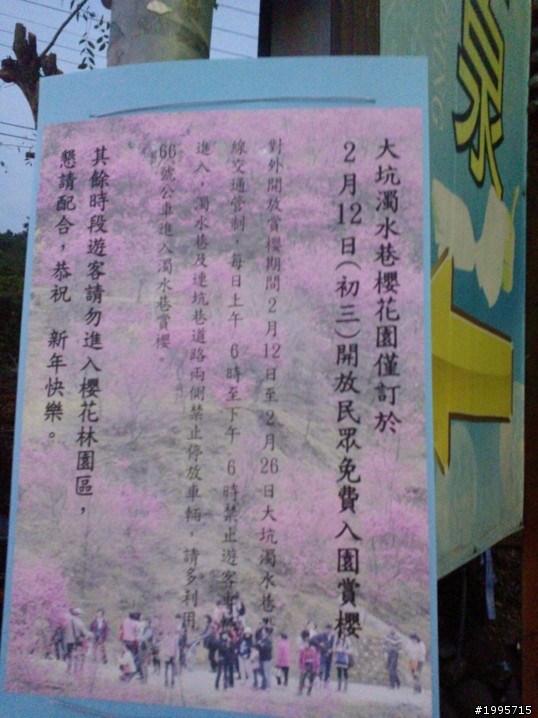 大坑濁水巷櫻花園僅訂於
2月12日(初三)開放民眾免費入園賞櫻
對外開放賞櫻期間2月12日至2月26日大坑濁水巷
線交通管制，每日上午6時至下午6時禁止遊客
進入，濁水巷及連坑巷道路兩側禁止停放車輛，請多利用
66號公車進入濁水巷賞櫻。
其餘時段遊客請勿進入櫻花林園區，
懇請配合，恭祝 新年快樂。
泉
#1995715